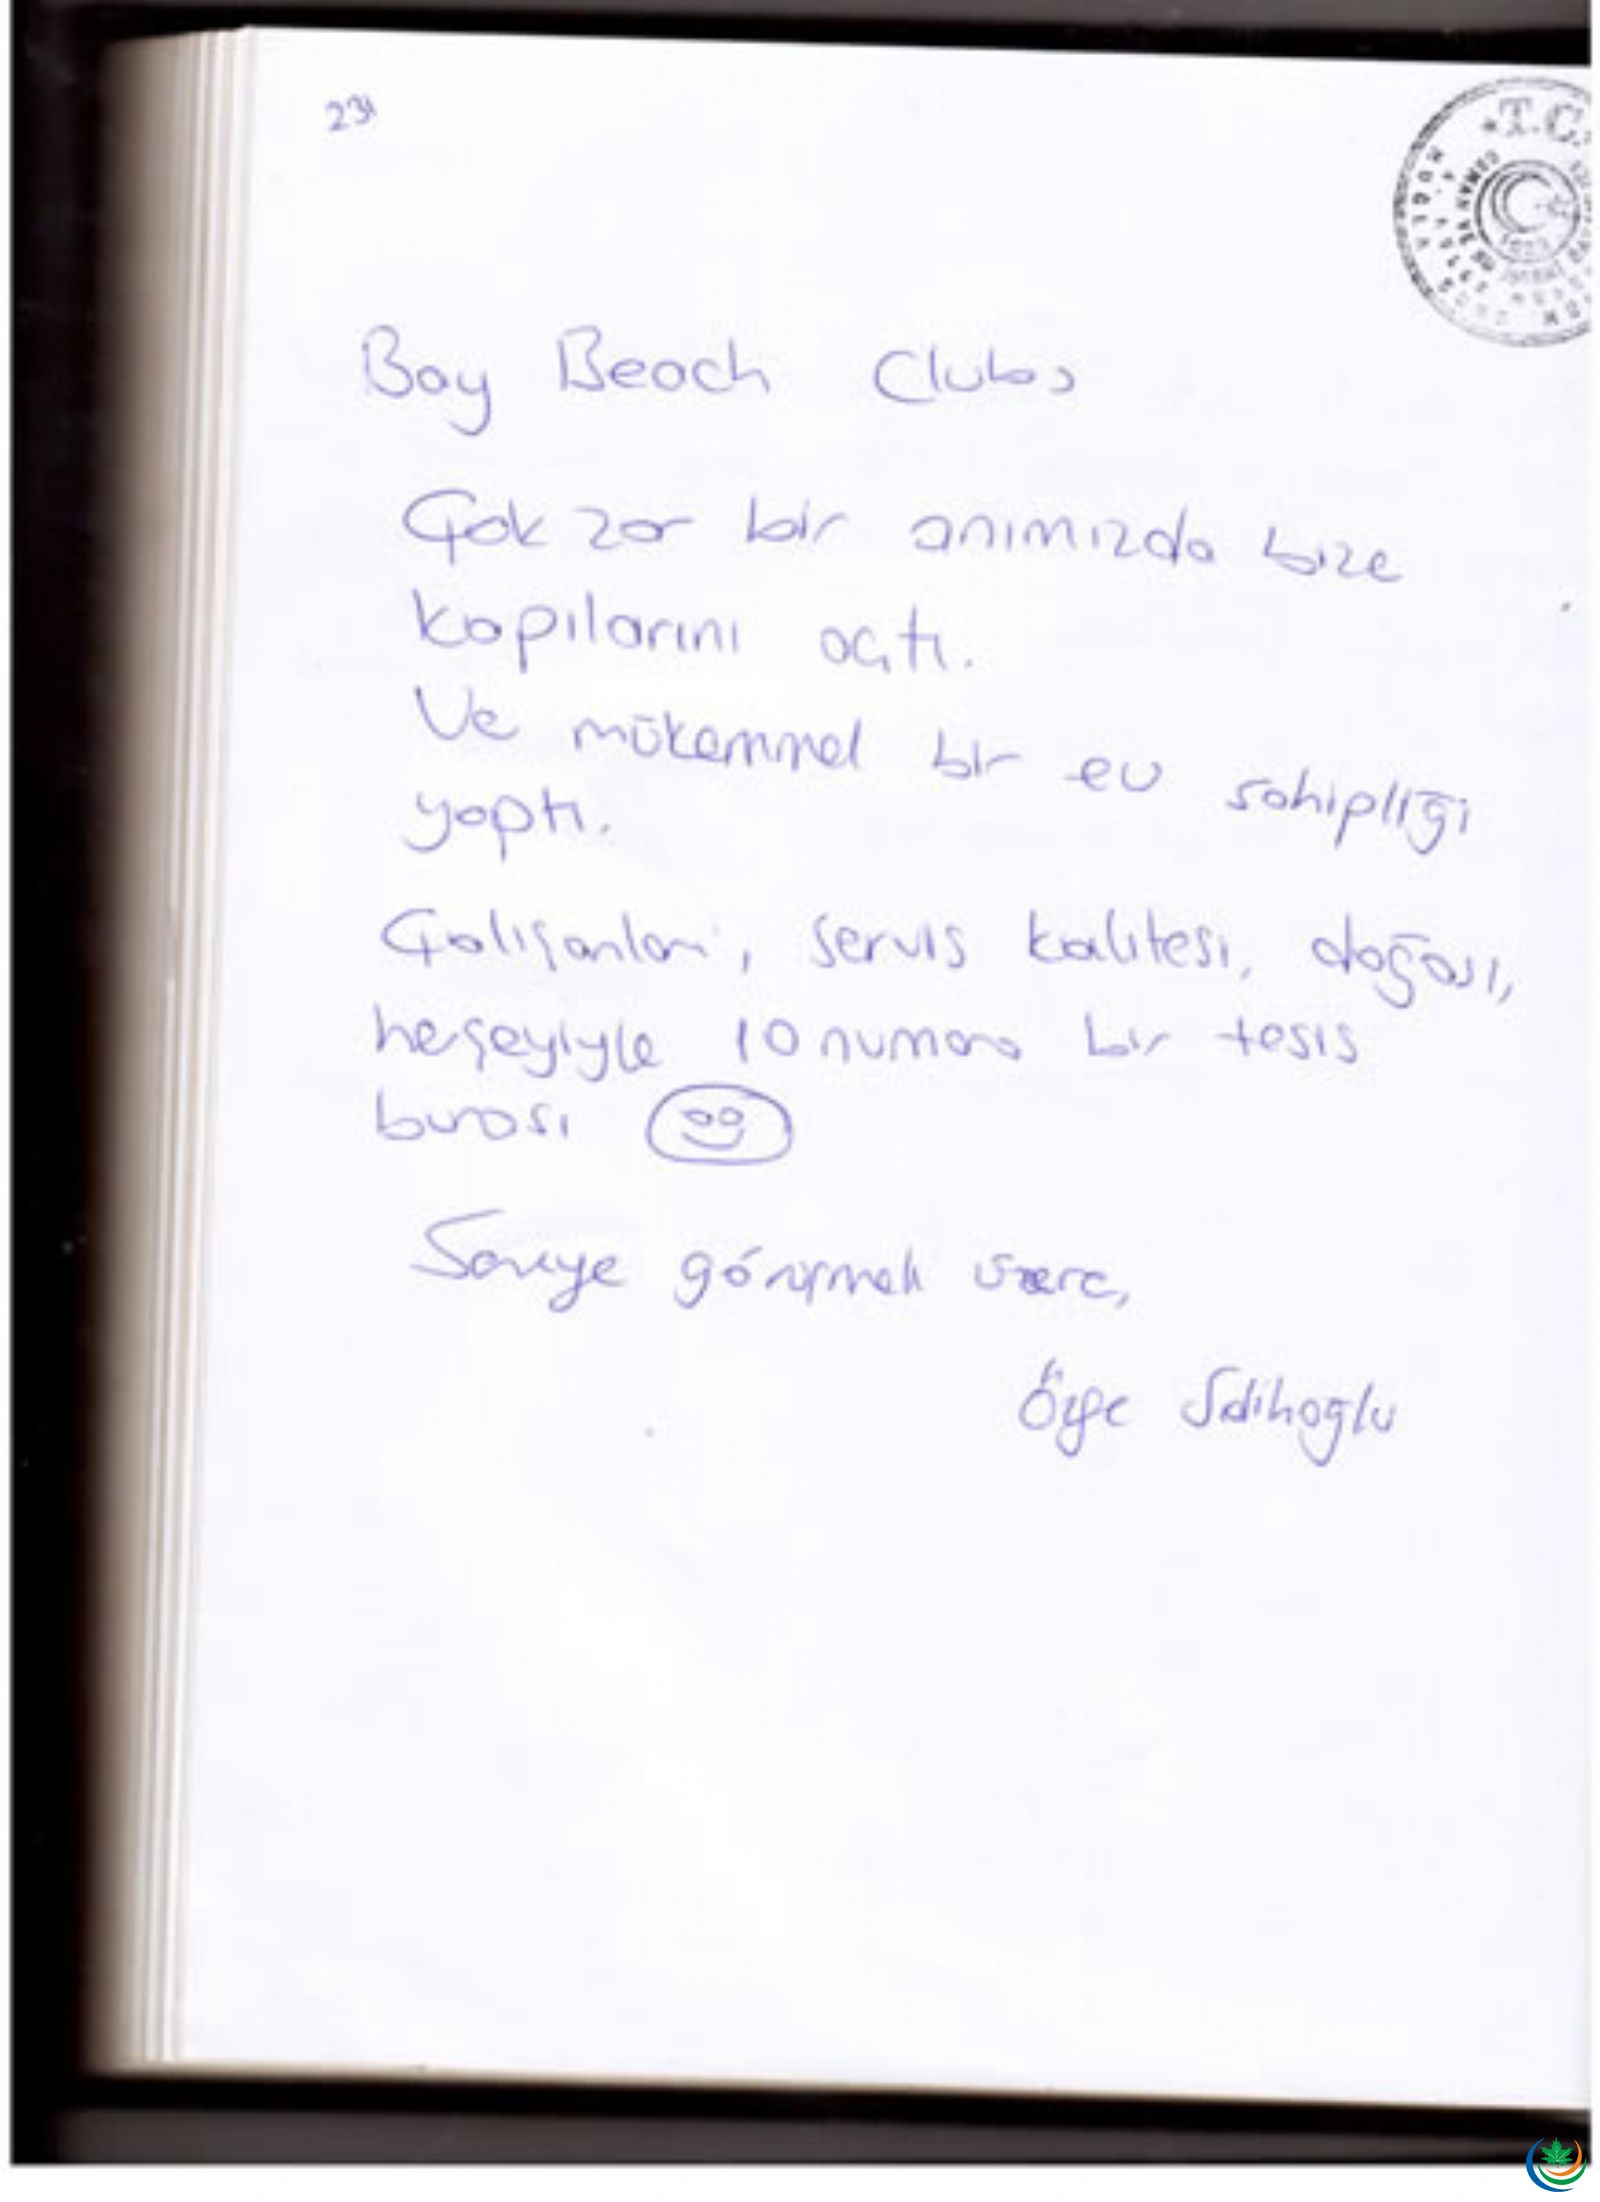 23
T.C.
MUĞLA
1923
Bay Beach Club,
Çok zor bir anımızda bize
kapılarını açtı.
Ve mükemmel bir ev sahipliği
yaptı.
Çalışanları, servis kalitesi, doğası,
herşeyiyle 10 numara bir tesis
burası
Seneye görüşmek üzere,
Özge Salihoğlu